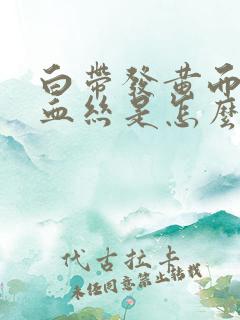 白帶發黃而
血絲是怎麼
代古拉卡
未經同意禁止轉載